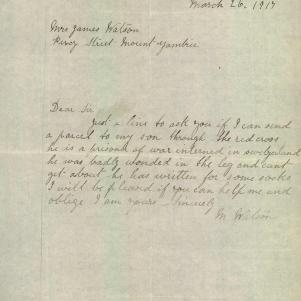 March 26. 1917
Mrs James Watson
Percy Street Mount Gambier
Dear Sir
Just a line to ask you if I can send
a parcel to my son through the red cross
he is a prisoner of war interned in switzerland
he was badly wonded in the leg and cant
get about he has written for some socks
I will be pleased if you can help me and
oblige I am yours sincerely
M Watson